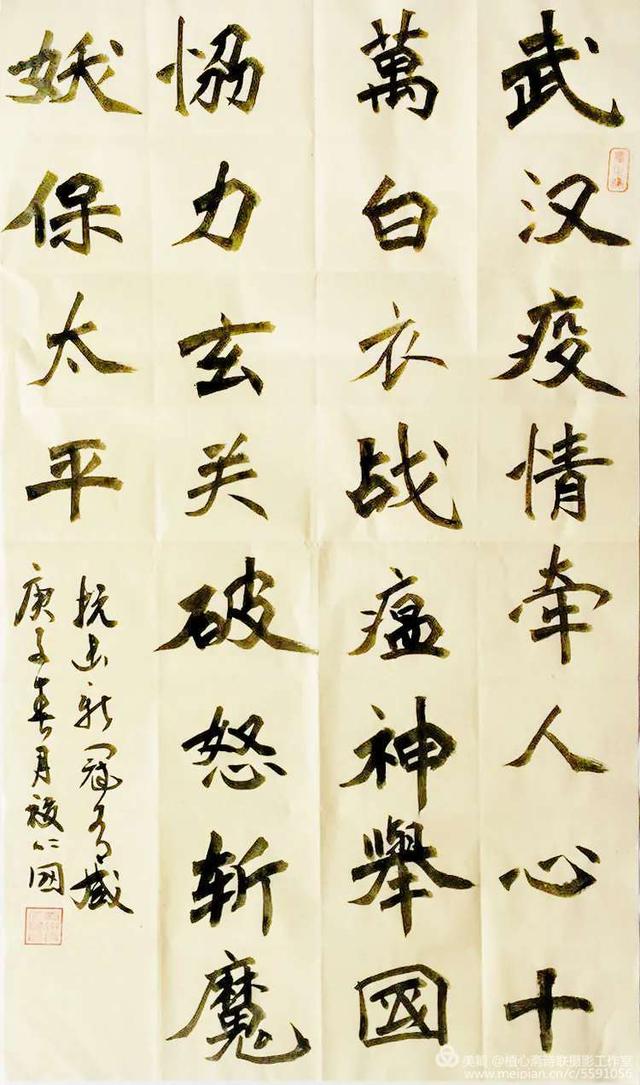 武汉疫情牵人心十
萬白衣战瘟神舉國
恊力玄关破怒斩魔
妖保太平
抗击新冠有感
庚子春月 仁國
美篇 @植心斋诗联摄影工作室
www.meipian.cn/c/5591056